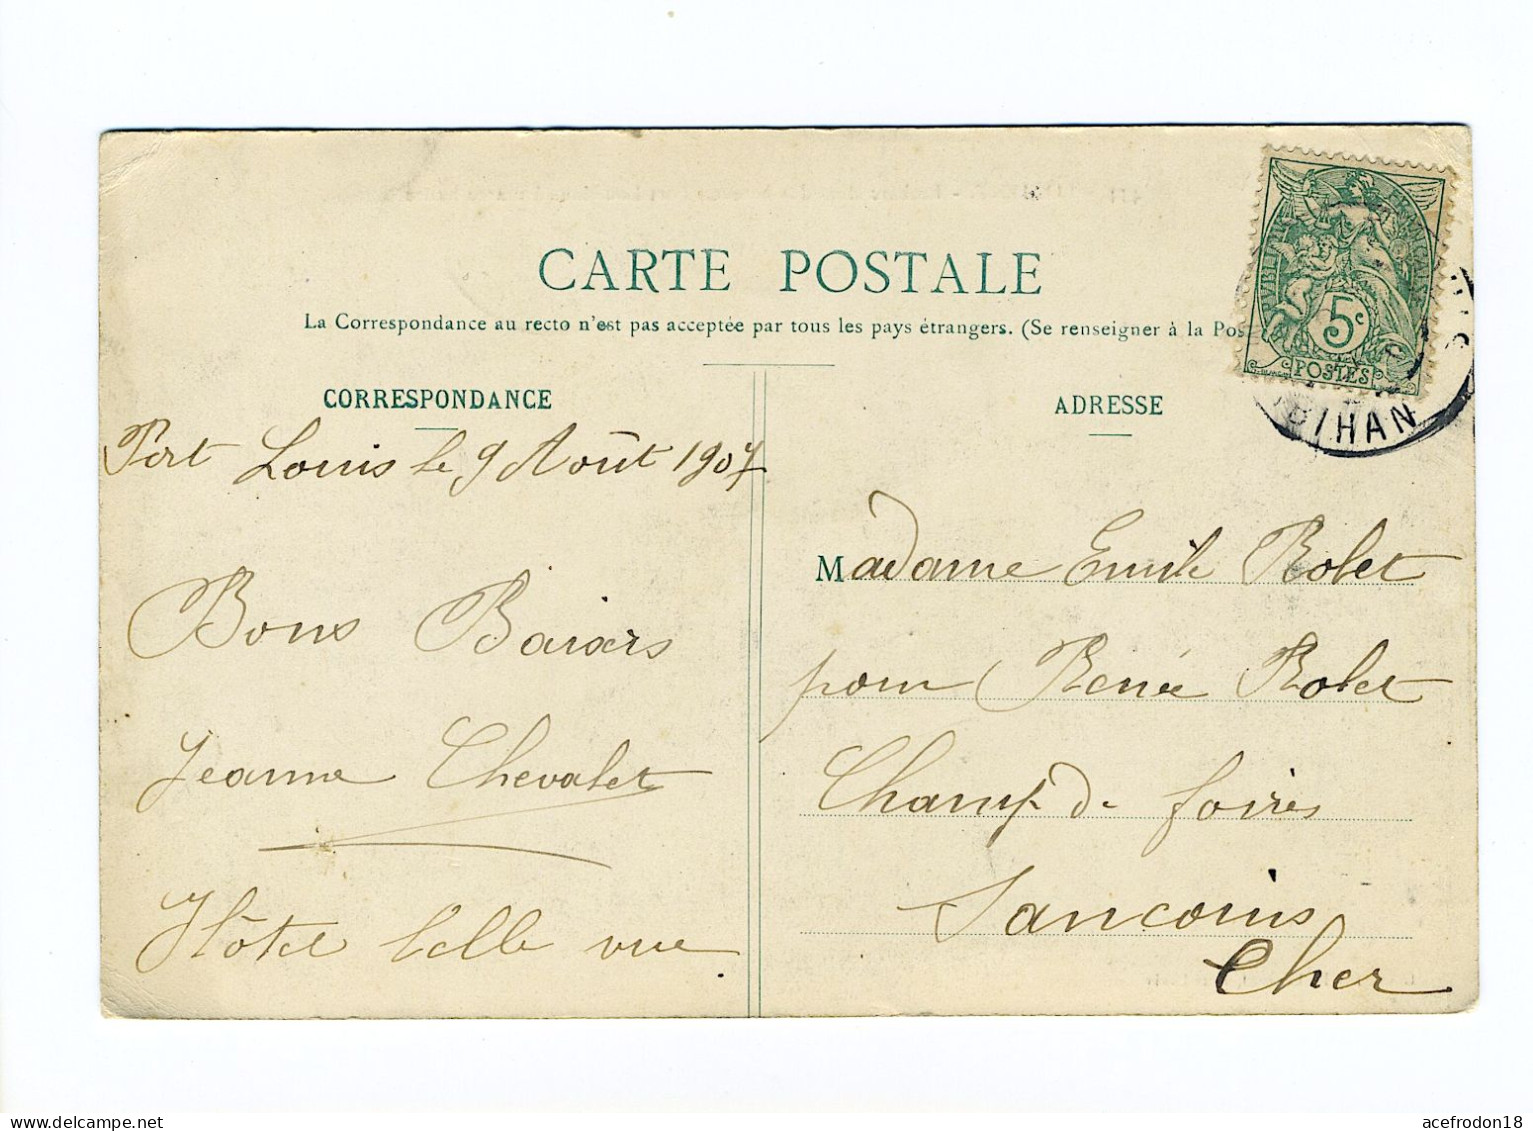 CARTE POSTALE
La Correspondance au recto n'est pas acceptée par tous les pays étrangers. (Se renseigner à la Pos
CORRESPONDANCE
Port Louis le 9 Août 1907
Bons Baisers
Jeanne Chevalet
Hôtel belle vue
ADRESSE
5c
POSTES
BIHAN
Madame Emile Rolet
pour Renée Rolet
Champ de foires
Sancoins
Cher
acefrodon18